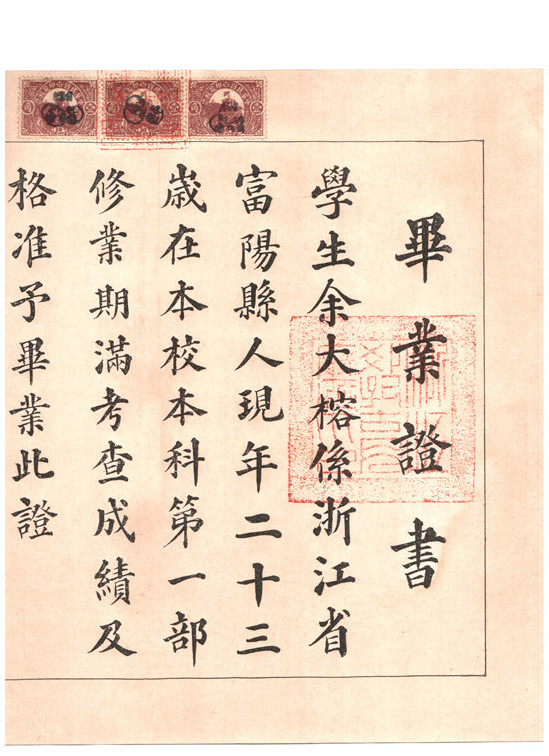 畢業證書
學生余大榕係浙江省
富陽縣人現年二十三
歲在本校本科第一部
修業期滿考查成績及
格准予畢業此證